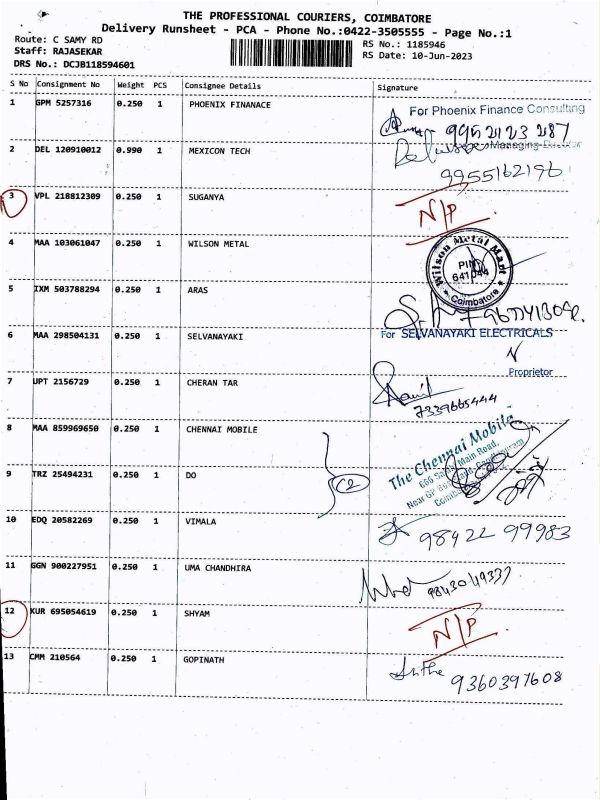 THE PROFESSIONAL COURIERS, COIMBATORE
Delivery Runsheet - PCA - Phone No.:0422-3505555 - Page No.:1
Route: C SAMY RD
RS No.: 1185946
Staff: RAJASEKAR
RS Date: 10-Jun-2023
DRS No.: DCJB118594601
S No Consignment No Weight PCS Consignee Details Signature
1 GPM 5257316 0.250 1 PHOENIX FINANACE
For Phoenix Finance Consulting
Managing Director
2 DEL 120910012 0.990 1 MEXICON TECH
9955162196
3 VPL 218812309 0.250 1 SUGANYA N/P
4 MAA 103061047 0.250 1 WILSON METAL
Wilson Metal Mart
PIN
Coimbatore
5 IXM 503788294 0.250 1 ARAS
6 MAA 298504131 0.250 1 SELVANAYAKI
For SELVANAYAKI ELECTRICALS
Proprietor
7 UPT 2156729 0.250 1 CHERAN TAR
7339665444
8 MAA 859969650 0.250 1 CHENNAI MOBILE
The Chennai Mobile
9 TRZ 25494231 0.250 1 DO
10 EDQ 20582269 0.250 1 VIMALA
98422 99983
11 GGN 900227951 0.250 1 UMA CHANDHIRA
9843049337
12 KUR 695054619 0.250 1 SHYAM N/P
13 CMM 210564 0.250 1 GOPINATH
9360397608